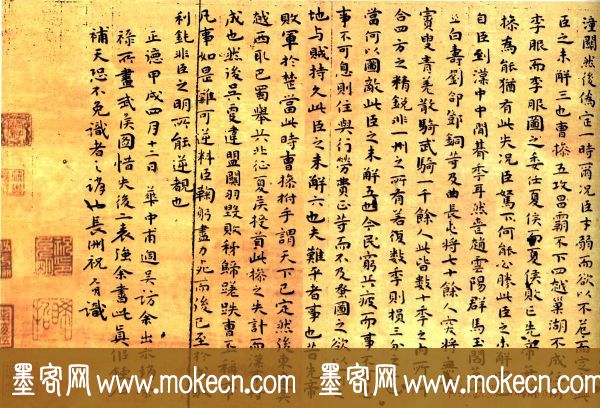 潼關然後偽定一時爾况臣才弱而欲以不危而定之
臣之未解三也曹操五攻昌霸不下四越巢湖不成
李服而李服圖之委任夏侯而夏侯敗亡先帝每稱
操為能猶有此失况臣駑下何能必勝此臣之未解
自臣到漢中中間朞年耳然喪趙雲陽群馬玉閻
立白壽劉郃鄧銅等及曲長屯將七十餘人突將無
賨叟青羌散騎武騎一千餘人此皆數十年之內所
合四方之精銳非一州之所有若復數年則損三分
當何以圖敵此臣之未解五也今民窮兵疲而事不
事不可息則住與行勞費正等而不及蚤圖之欲以
地與賊持久此臣之未解六也夫難平者事也昔先帝
敗軍於楚當此時曹操拊手謂天下已定然後東吳
越西取巴蜀舉兵北征夏侯授首此操之失計而漢
成也然後吳更違盟關羽毀敗秭歸蹉跌曹丕稱
凡事如是難可逆料臣鞠躬盡力死而後已至於
利鈍非臣之明所能逆覩也
正德甲戌四月十二日 華中甫過吳訪余出示
祿所畫武侯圖惜失後二表強余書此真
補天恐不免識者之誚也長洲祝 識
墨客网 www.mokecn.com 墨客网 www.mokecn.com